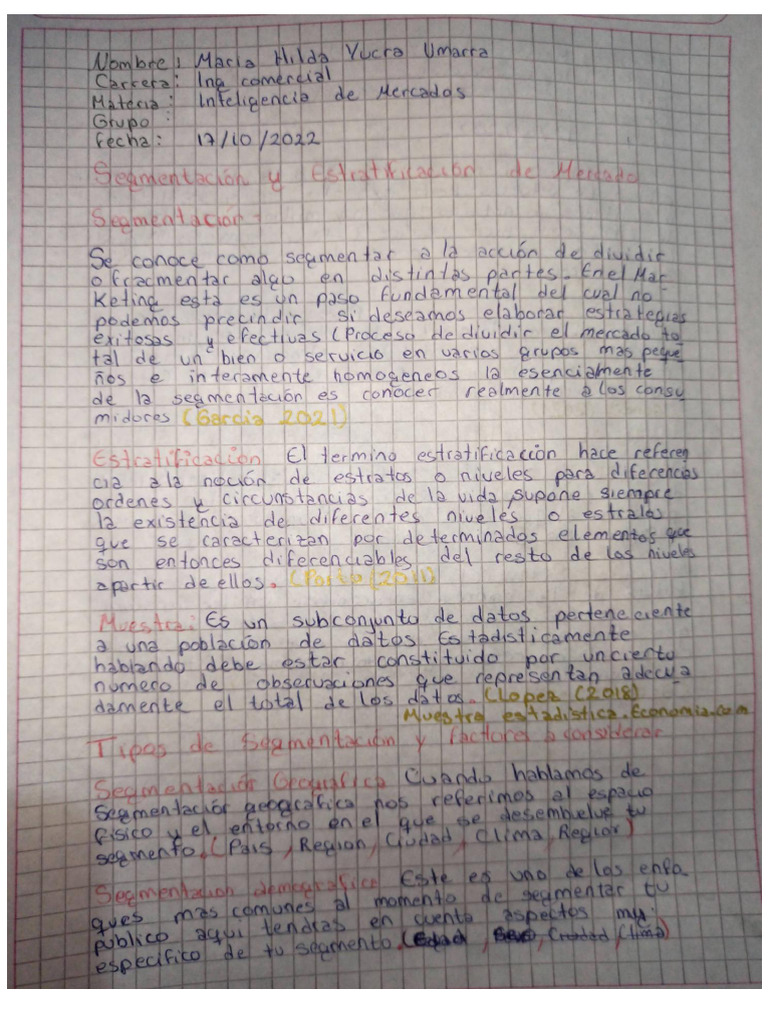 Nombre: Maria Hilda Yucra Umarra
Carrera: Ing comercial
Materia: Inteligencia de Mercados
Grupo :
fecha: 17/10/2022
Segmentación y Estratificación de Mercado
Segmentación-
Se conoce como segmentar a la acción de dividir
o fracmentar algo en distintas partes. En el Mar
Keting esta es un paso fundamental del cual no
podemos precindir si deseamos elaborar estrategias
exitosas y efectivas (Proceso de dividir el mercado to
tal de un bien o servicio en varios grupos mas peque
ños e interamente homogeneos la esencialmente
de la segmentación es conocer realmente a los consu
midores (Garcia 2021)
Estratificación El termino estratificacción hace referen
cia a la noción de estratos o niveles para diferencias
ordenes y circunstancias de la vida supone siempre
la existencia de diferentes niveles o estralos
que se caracterizan por determinados elementos que
son entonces diferenciables del resto de los niveles
apartir de ellos. (2011)
Muestra: Es un subconjunto de datos perteneciente
a una población de datos Estadisticamente
hablando debe estar constituido por un cierto
numero de observaciones que representan adecua
damente el total de los datos. (Lopez (2018)
Muestra estadistica.Economia.com
Tipos de Segmentación y factores a considerar
Segmentación Geografica Cuando hablamos de
segmentación geografica nos referimos al espacio
fisico y el entorno en el que se desembuelve tu
segmento. (Pais, Region, Ciudad, Clima, Region)
Segmentacion demografico Este es uno de los enfa
ques mas comunes al momento de segmentar tu
publico aqui tendras en cuenta aspectos muy
especifico de tu segmento (Edad, Sexo, Ciudad, Clima)